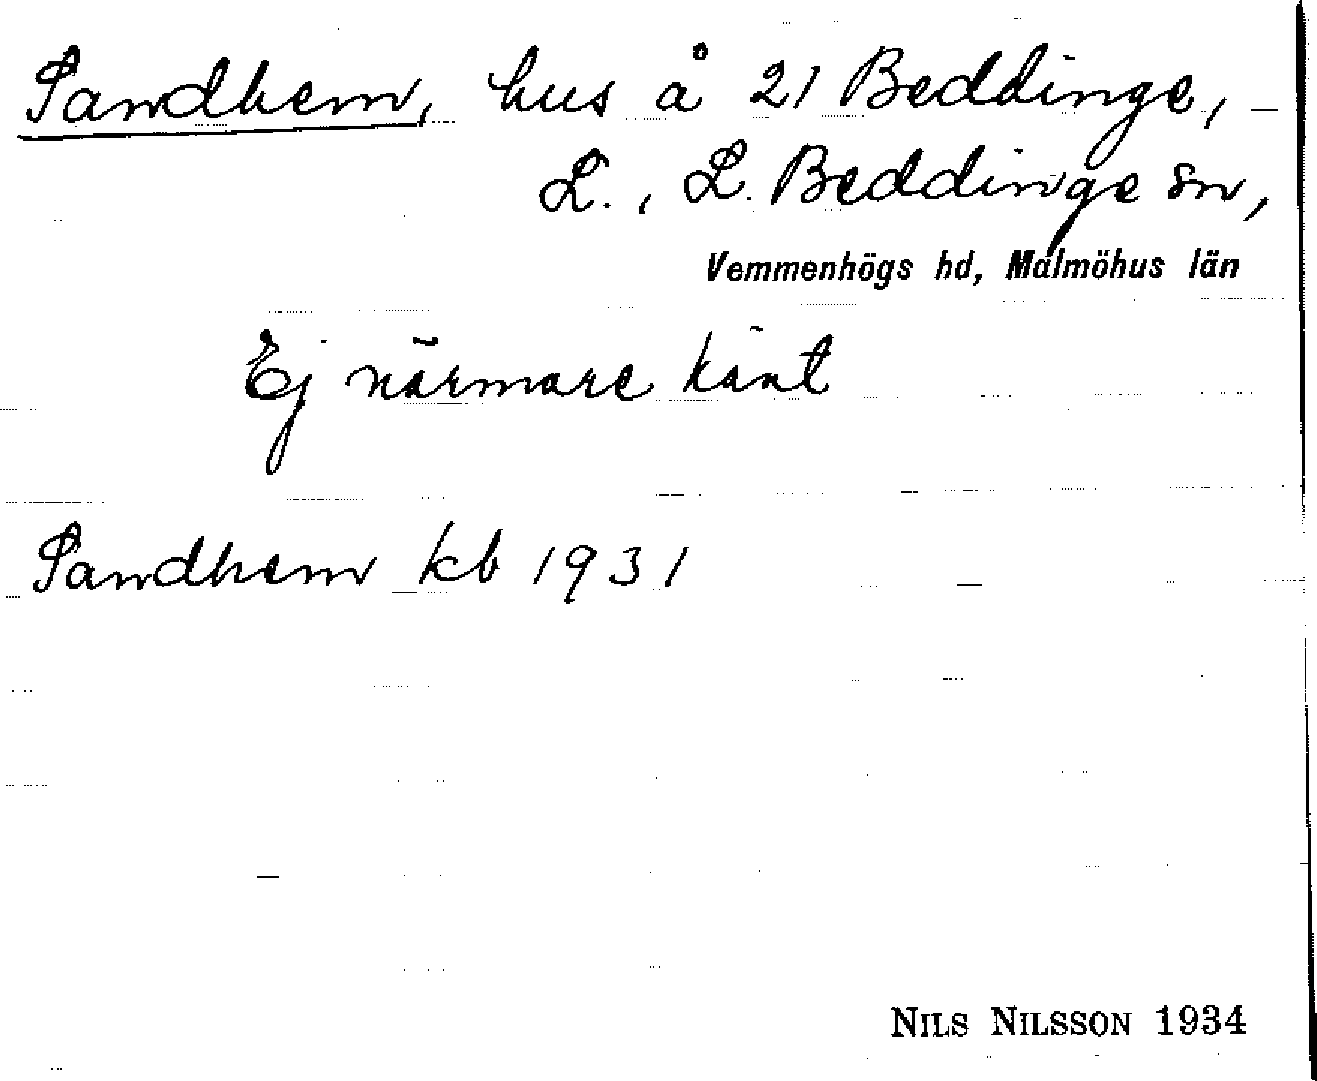 Sandhem, hus å 21 Beddinge,
L., L. Beddinge sn,
Vemmenhögs hd, Malmöhus län
Ej närmare känt
Sandhem kb 1931
NILS NILSSON 1934